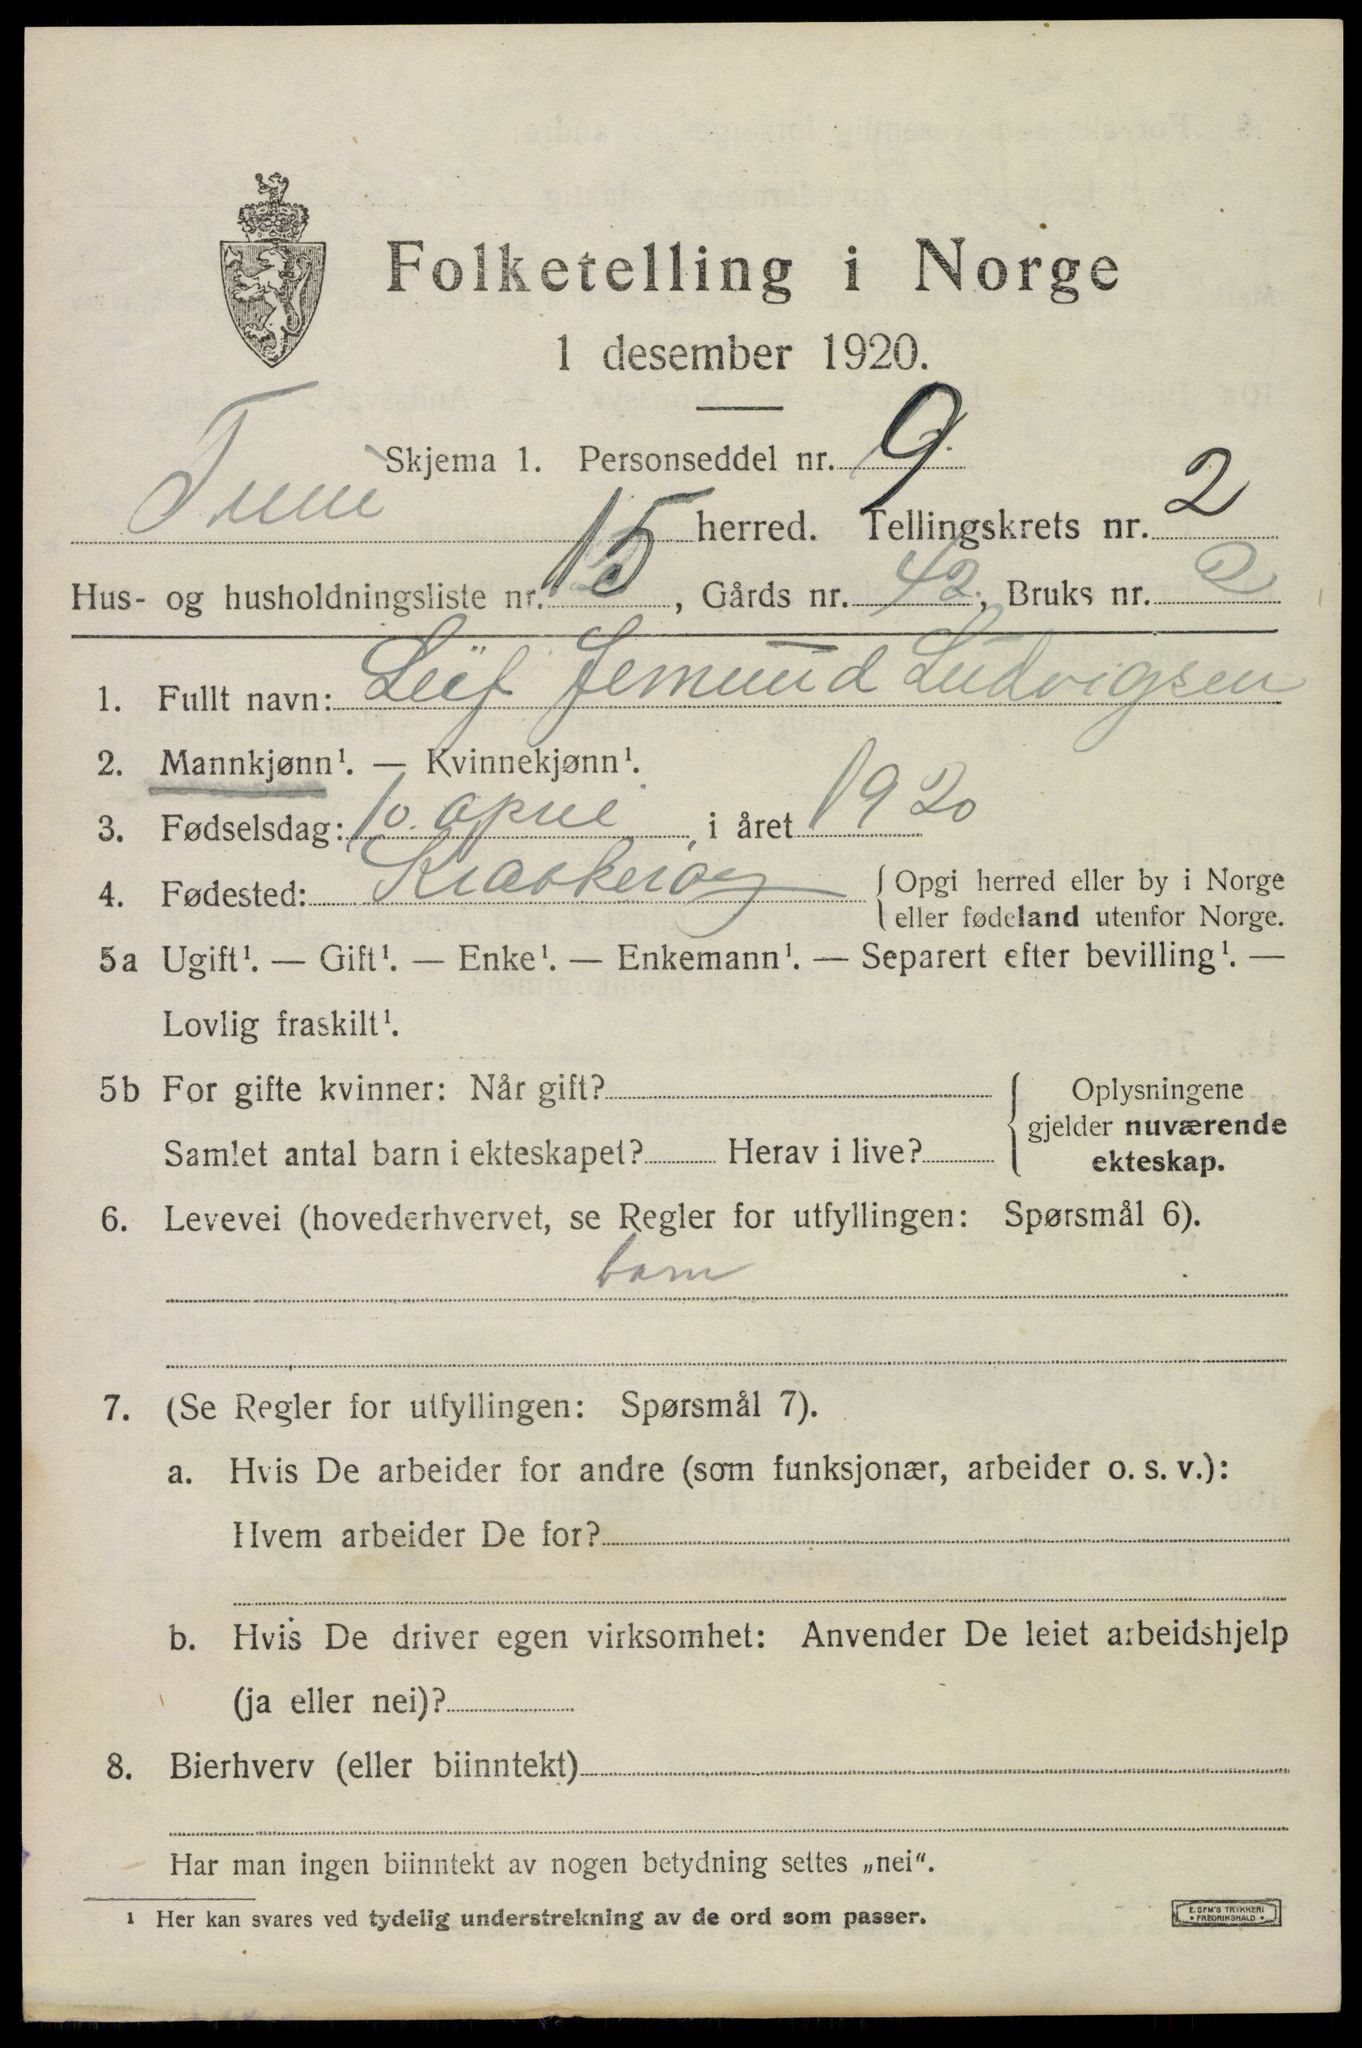 Folketelling i Norge
1 desember 1920.
Skjema 1. Personseddel nr. 9
Tune herred. Tellingskrets nr. 2
Hus- og husholdningsliste nr. 15, Gårds nr. 42, Bruks nr. 2
1. Fullt navn: Leif Jemund Ludvigsen
2. Mannkjønn¹. — Kvinnekjønn¹.
3. Fødselsdag: 10. april, i året 1920
4. Fødested: Kraakerøy { Opgi herred eller by i Norge
eller fødeland utenfor Norge.
5a Ugift¹. — Gift¹. — Enke¹. — Enkemann¹. — Separert efter bevilling¹. —
Lovlig fraskilt¹.
5b For gifte kvinner: Når gift? { Oplysningene
gjelder nuværende
Samlet antal barn i ekteskapet? Herav i live? ekteskap.
6. Levevei (hovederhvervet, se Regler for utfyllingen: Spørsmål 6).
barn
7. (Se Regler for utfyllingen: Spørsmål 7).
a. Hvis De arbeider for andre (som funksjonær, arbeider o. s. v.):
Hvem arbeider De for?
b. Hvis De driver egen virksomhet: Anvender De leiet arbeidshjelp
(ja eller nei)?
8. Bierhverv (eller biinntekt)
Har man ingen biinntekt av nogen betydning settes „nei“.
¹ Her kan svares ved tydelig understrekning av de ord som passer.
E. SEM'S TRYKKERI
• FREDRIKSHALD •